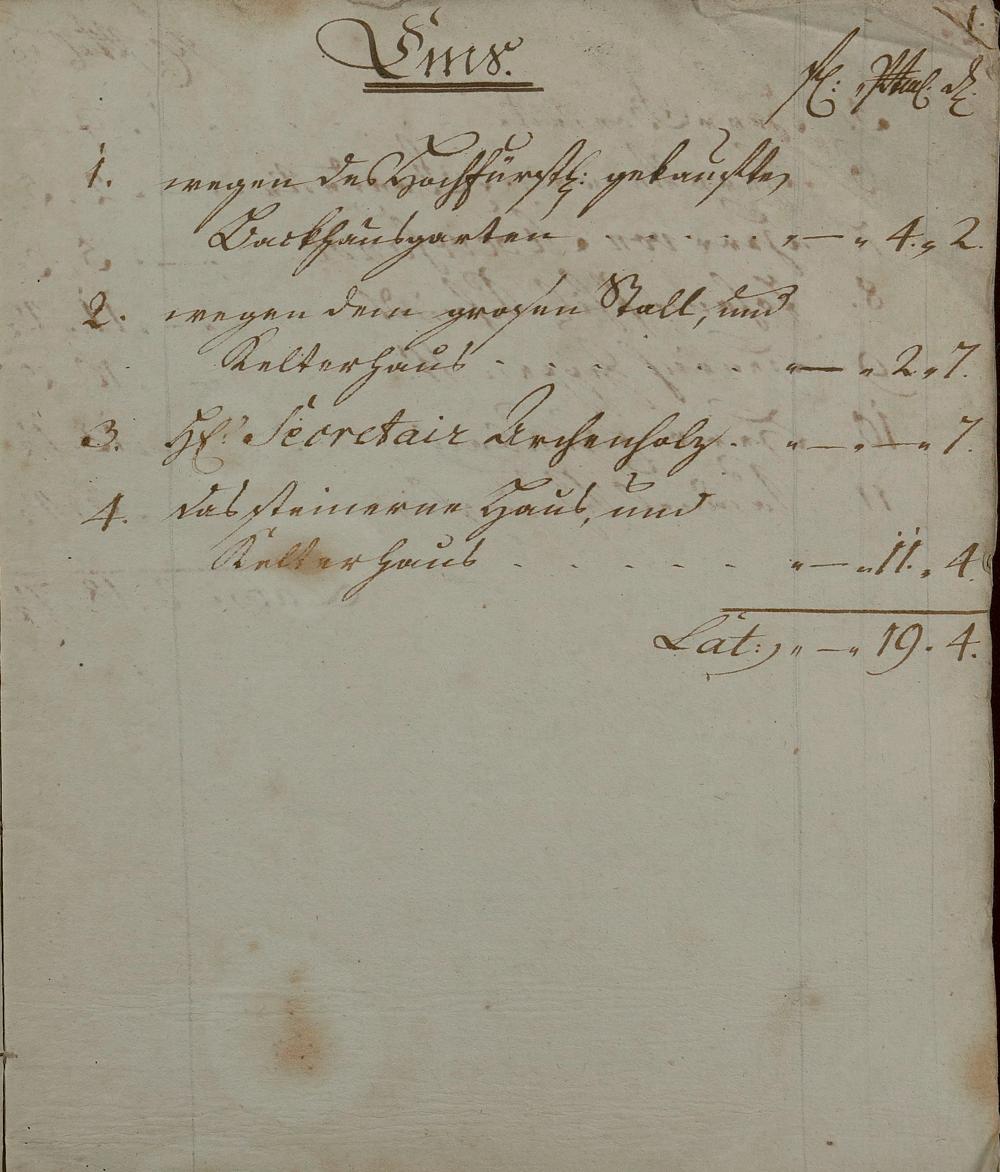 1.
Ems.
fl:
1. wegen des Hochfürstl: gekauften
Backhausgarten . . . . . " — " 4. " 2.
2. wegen dem grosen Stall, und
Kelterhaus - . . . . . " — " 2 " 7.
3. H: Secretair Archenholz . " — " — " 7.
4. das steinerne Haus, und
Kelterhaus . . . - - . " — " 11. " 4.
Lat: " — " 19. 4.